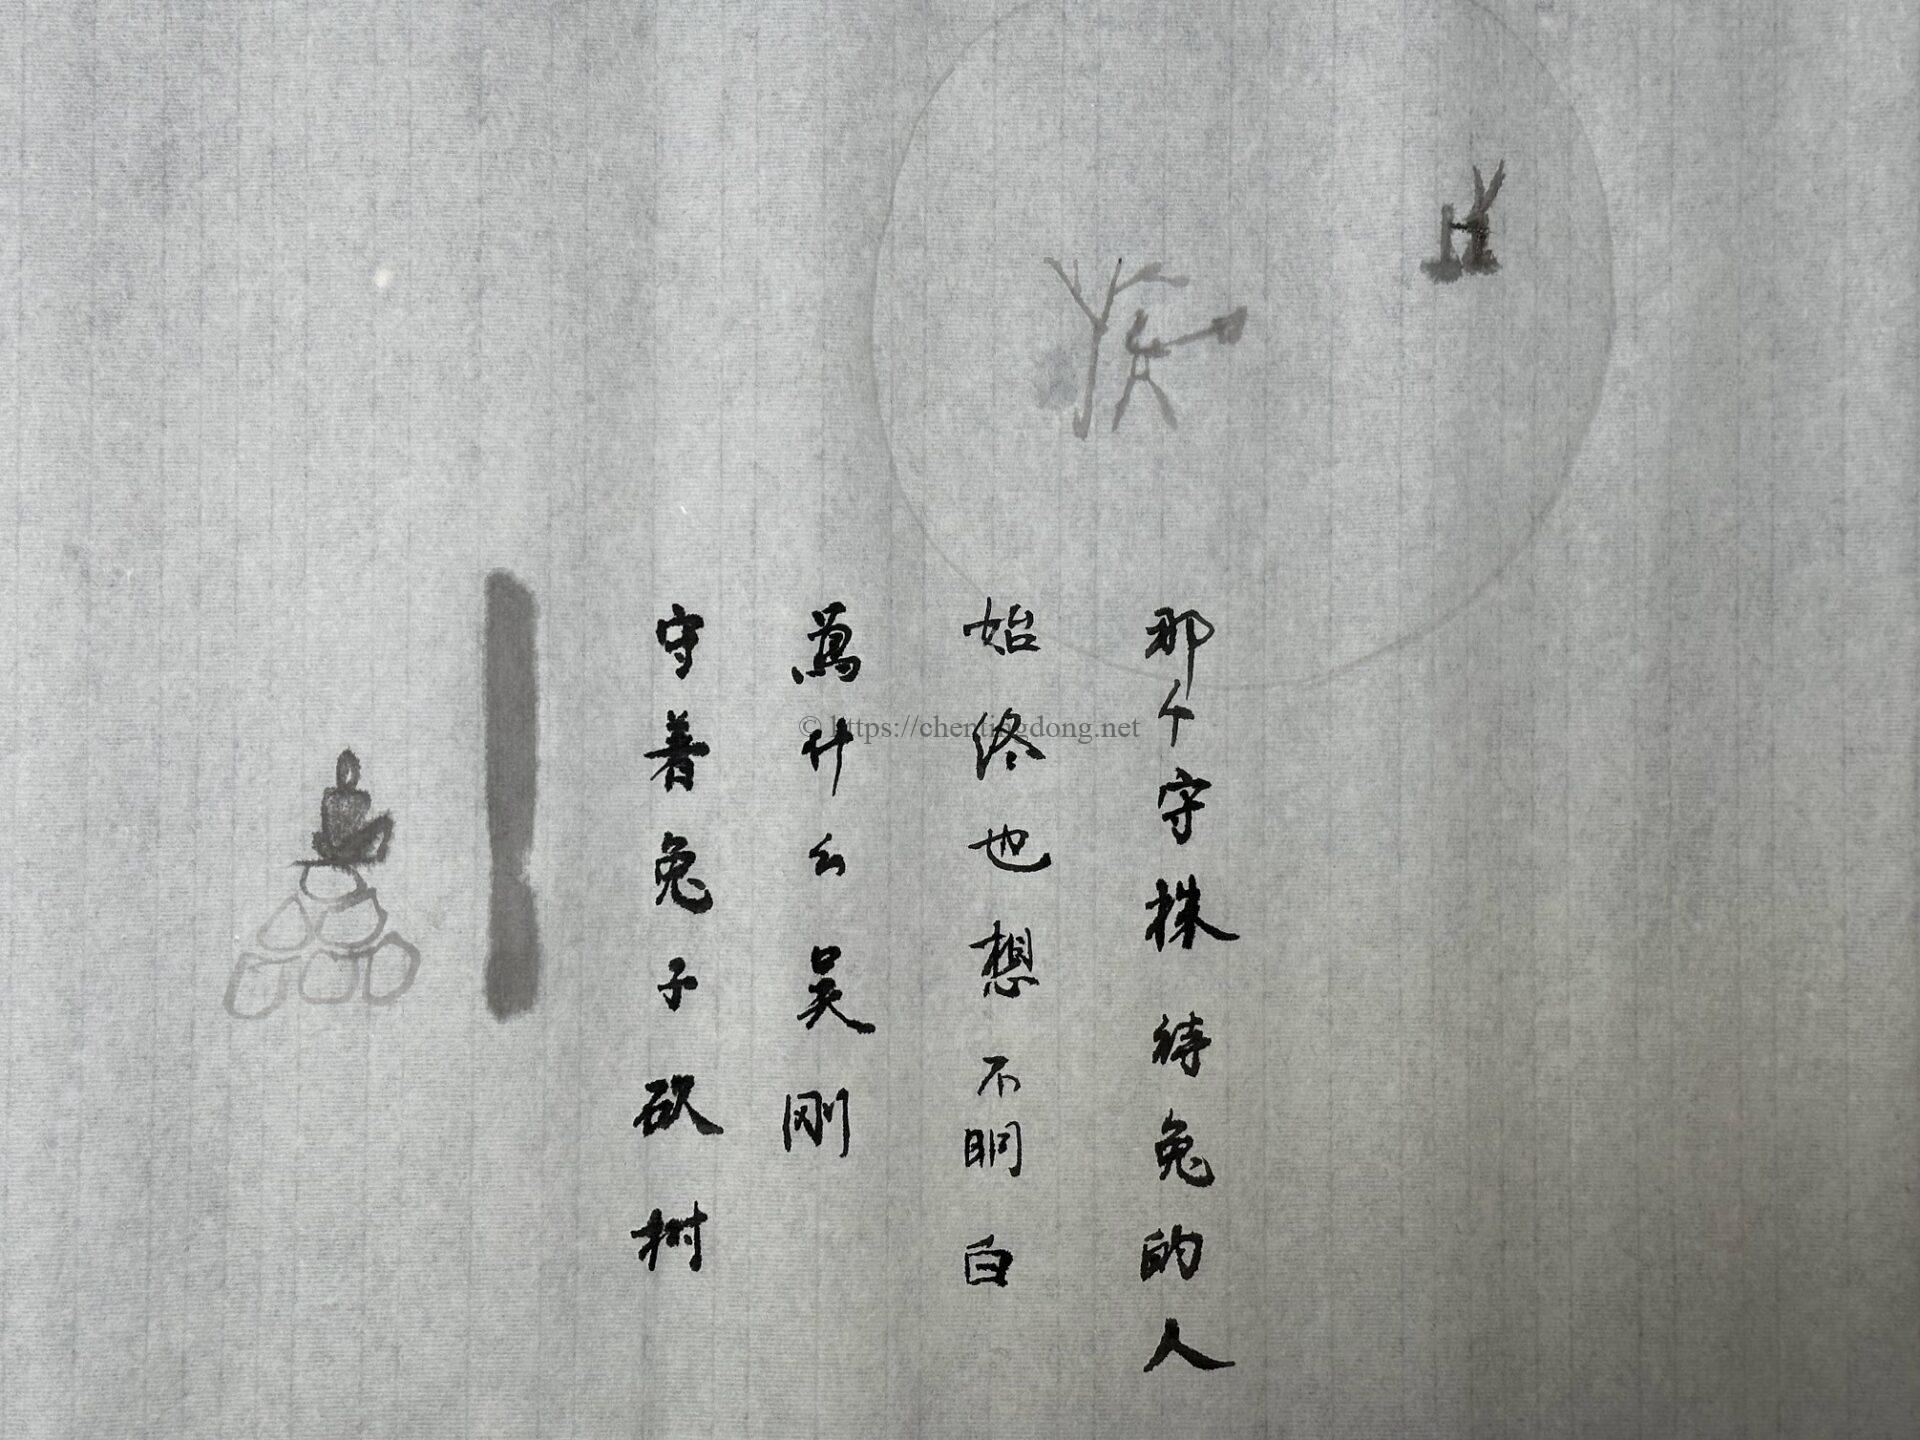 那个守株待兔的人
始终也想不明白
为什么吴刚
守着兔子砍树
© https://chentingdong.net